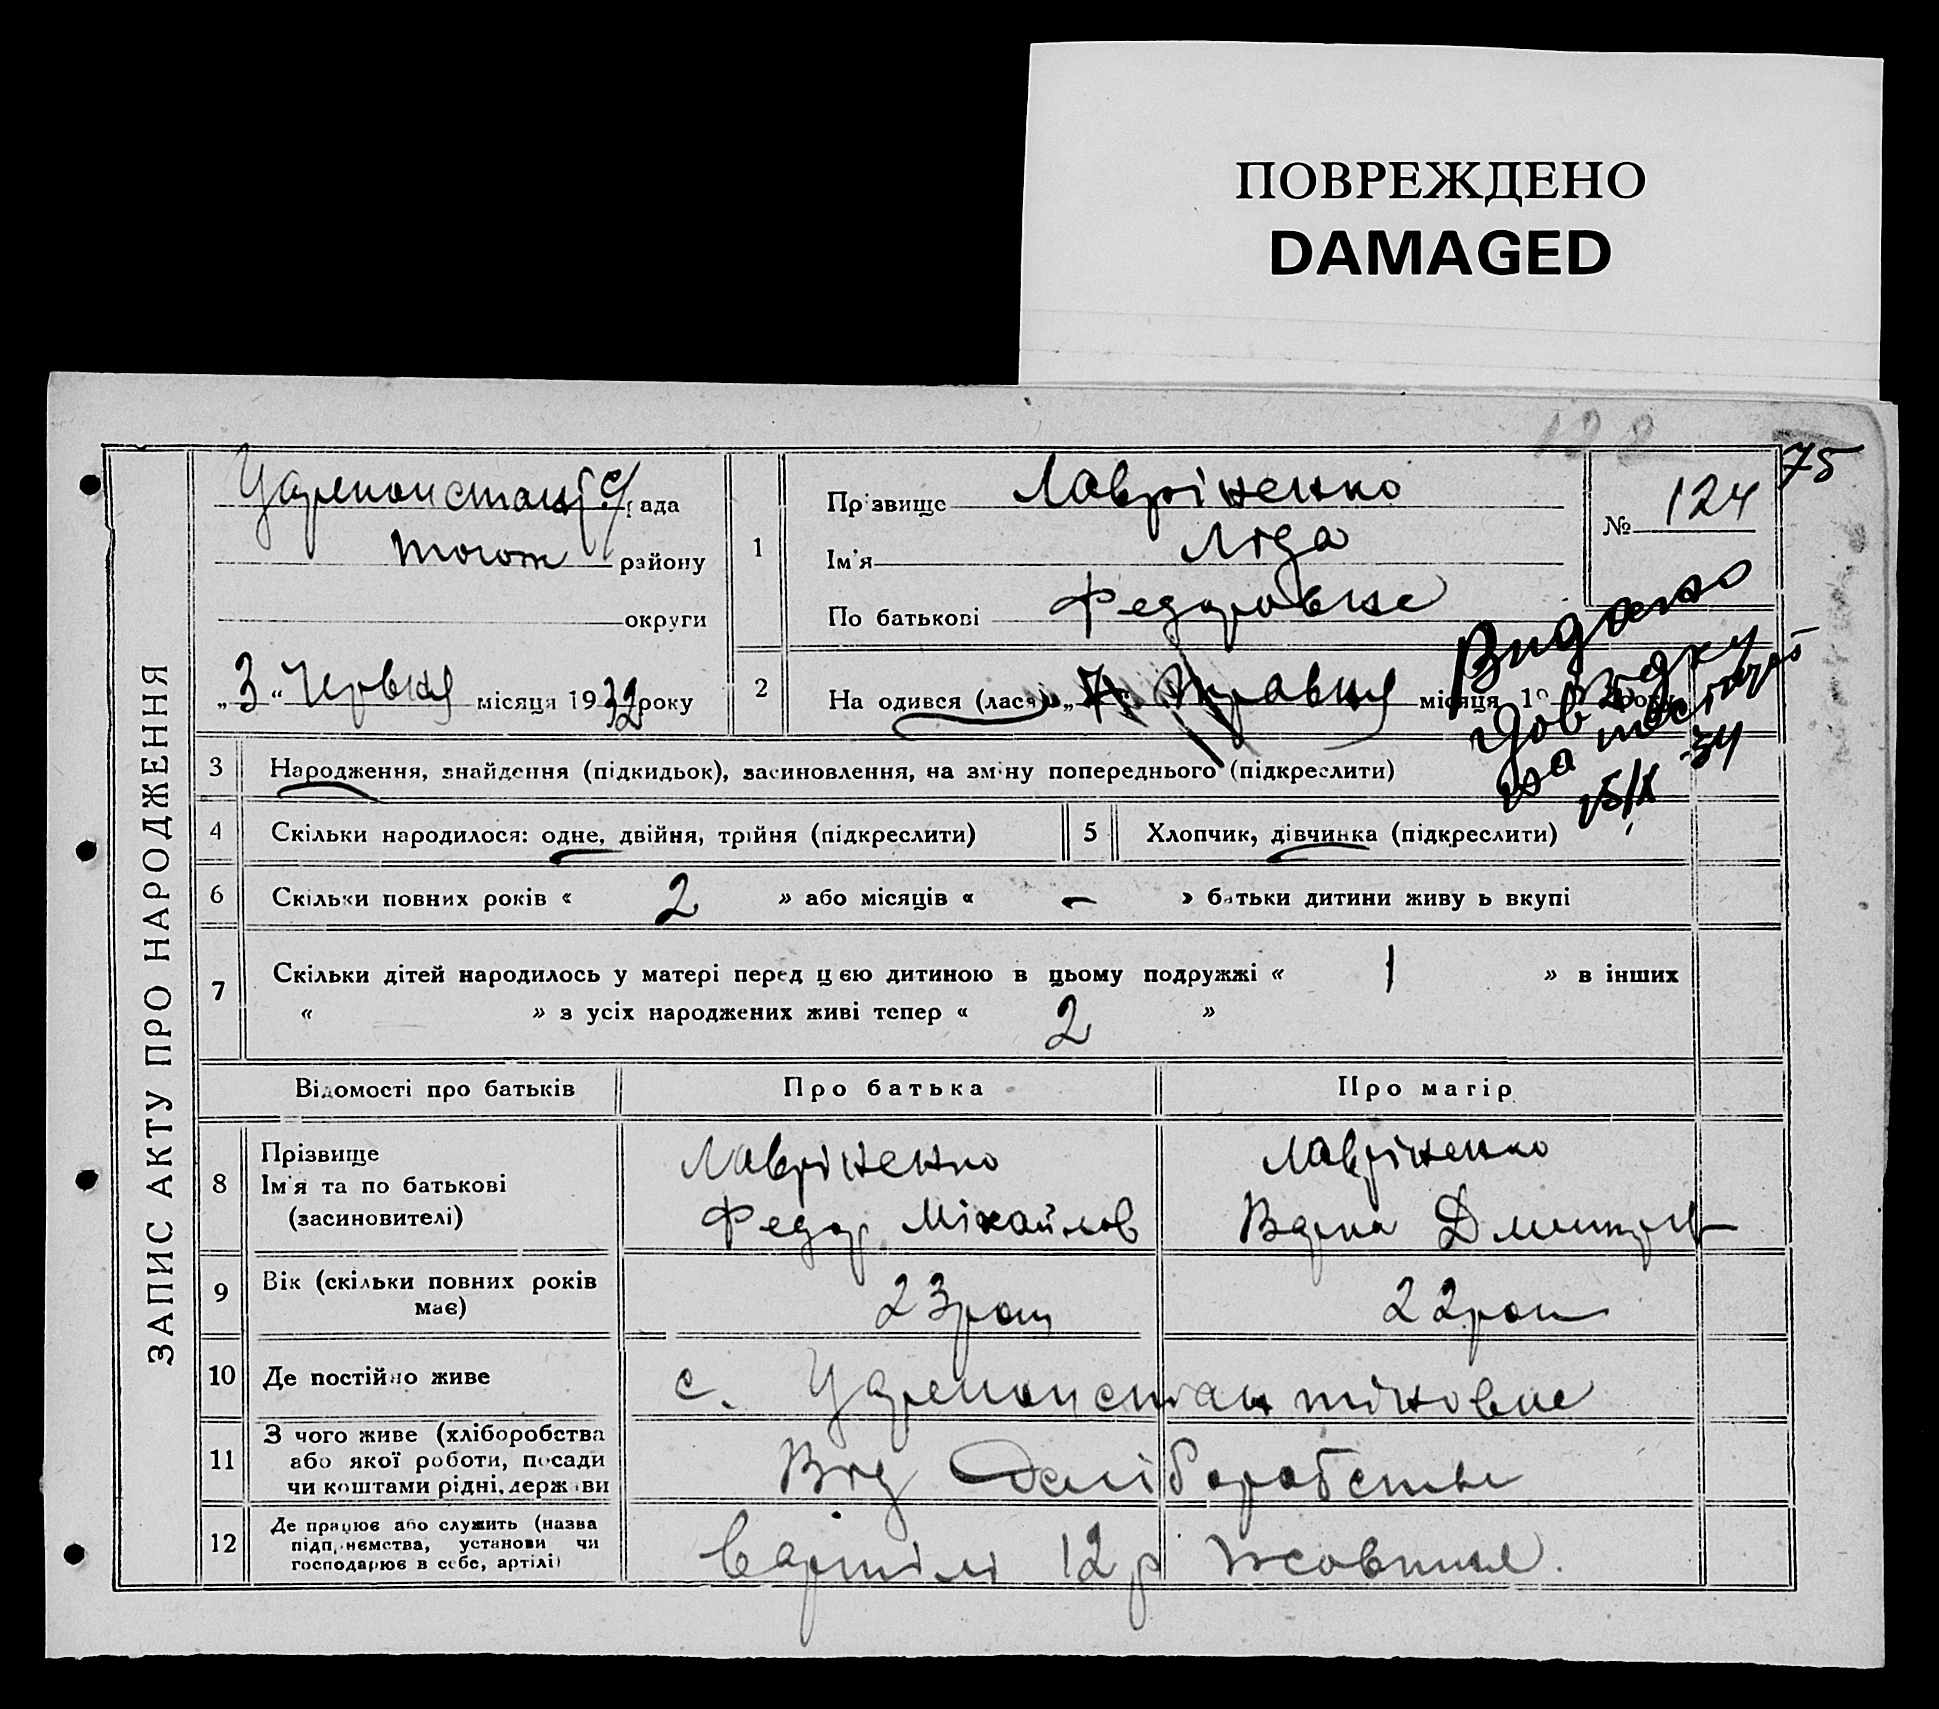 ПОВРЕЖДЕНО
DAMAGED
75
ЗАПИС АКТУ ПРО НАРОДЖЕННЯ
Царекопстант с/рада
Токм району
округи
„3“ Червня місяця 1932 року
1
Прізвище Лавріненко
Ім'я Ліда
По батькові Федоровне
№ 124
2 На одився (лася) „ Травня місяця 19 року
Видано
довідку
на
15/X 34
3 Народження, знайдення (підкидьок), засиновлення, на зміну попереднього (підкреслити)
4 Скільки народилося: одне, двійня, трійня (підкреслити) 5 Хлопчик, дівчинка (підкреслити)
6 Скільки повних років « 2 » або місяців « – » батьки дитини живу ь вкупі
7 Скільки дітей народилось у матері перед цією дитиною в цьому подружжі « 1 » в інших
« » з усіх народжених живі тепер « 2 »
Відомості про батьків Про батька Про матір
8 Прізвище
Ім'я та по батькові
(засиновителі)
Лавріненко
Федор Міхайлов
Лавріненко
Варка Дмитр
9 Вік (скільки повних років
має)
23 рок
22 рок
10 Де постійно живе с. Царекопстантіновке
11 З чого живе (хліборобства
або якої роботи, посади
чи коштами рідні, держави
Від хліборобства
12 Де працює або служить (назва
підприємства, установи чи
господарює в себе, артілі)
Вартілі 12 р жовтня.